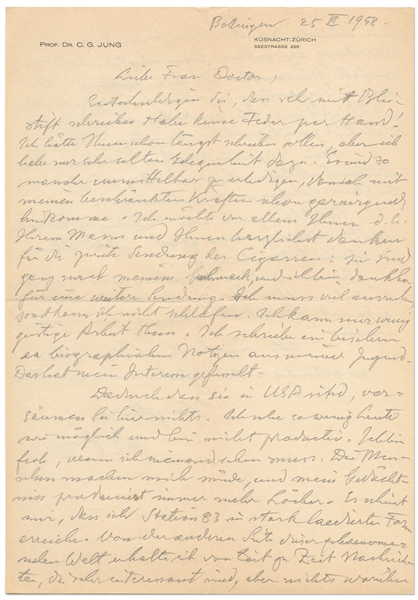 Bollingen 25 III 1958.
PROF. DR. C. G. JUNG
KÜSNACHT-ZÜRICH
SEESTRASSE 228
Liebe Frau Doctor,
Entschuldigen Sie, dass ich mit Blei-
stift schreibe. Habe keine Feder per Hand!
Ich hätte Ihnen schon längst schreiben sollen, aber ich
habe nur sehr selten Gelegenheit dazu. Es sind so
manche zu erledigen, dass ich mit
meinen beschränkten Kräften schon
Ich möchte vor allem Ihnen d. h.
Ihrem Mann und Ihnen herzlichst danken
für die gute Sendung der Cigarren: sie sind
ganz nach meinem Geschmack und ich bin dankbar
für eine weitere Sendung. Ich muss viel ausruhen,
sonst kann ich nicht schlafen. Ich kann nur wenig
geistige Arbeit thun. Ich schreibe ein bischen
an biographischen Notizen aus meiner Jugend.
Das hat mein Interesse gefesselt.
Dadurch dass sie in USA sind, ver-
säumen Sie hier nichts. Ich sehe so wenig Leute
wie möglich und bin nicht productiv. Ich bin
froh, wenn ich niemand sehen muss. Die Men-
schen machen mich müde, und mein Gedächt-
niss produciert immer mehr Löcher. Es scheint
mir, dass ich Station 83 in stark laedierter Form
erreiche. Von der anderen Seite dieser phaenome-
nalen Welt erhalte ich von Zeit zu Zeit Nachrich-
ten, die sehr interessant sind, aber nichts